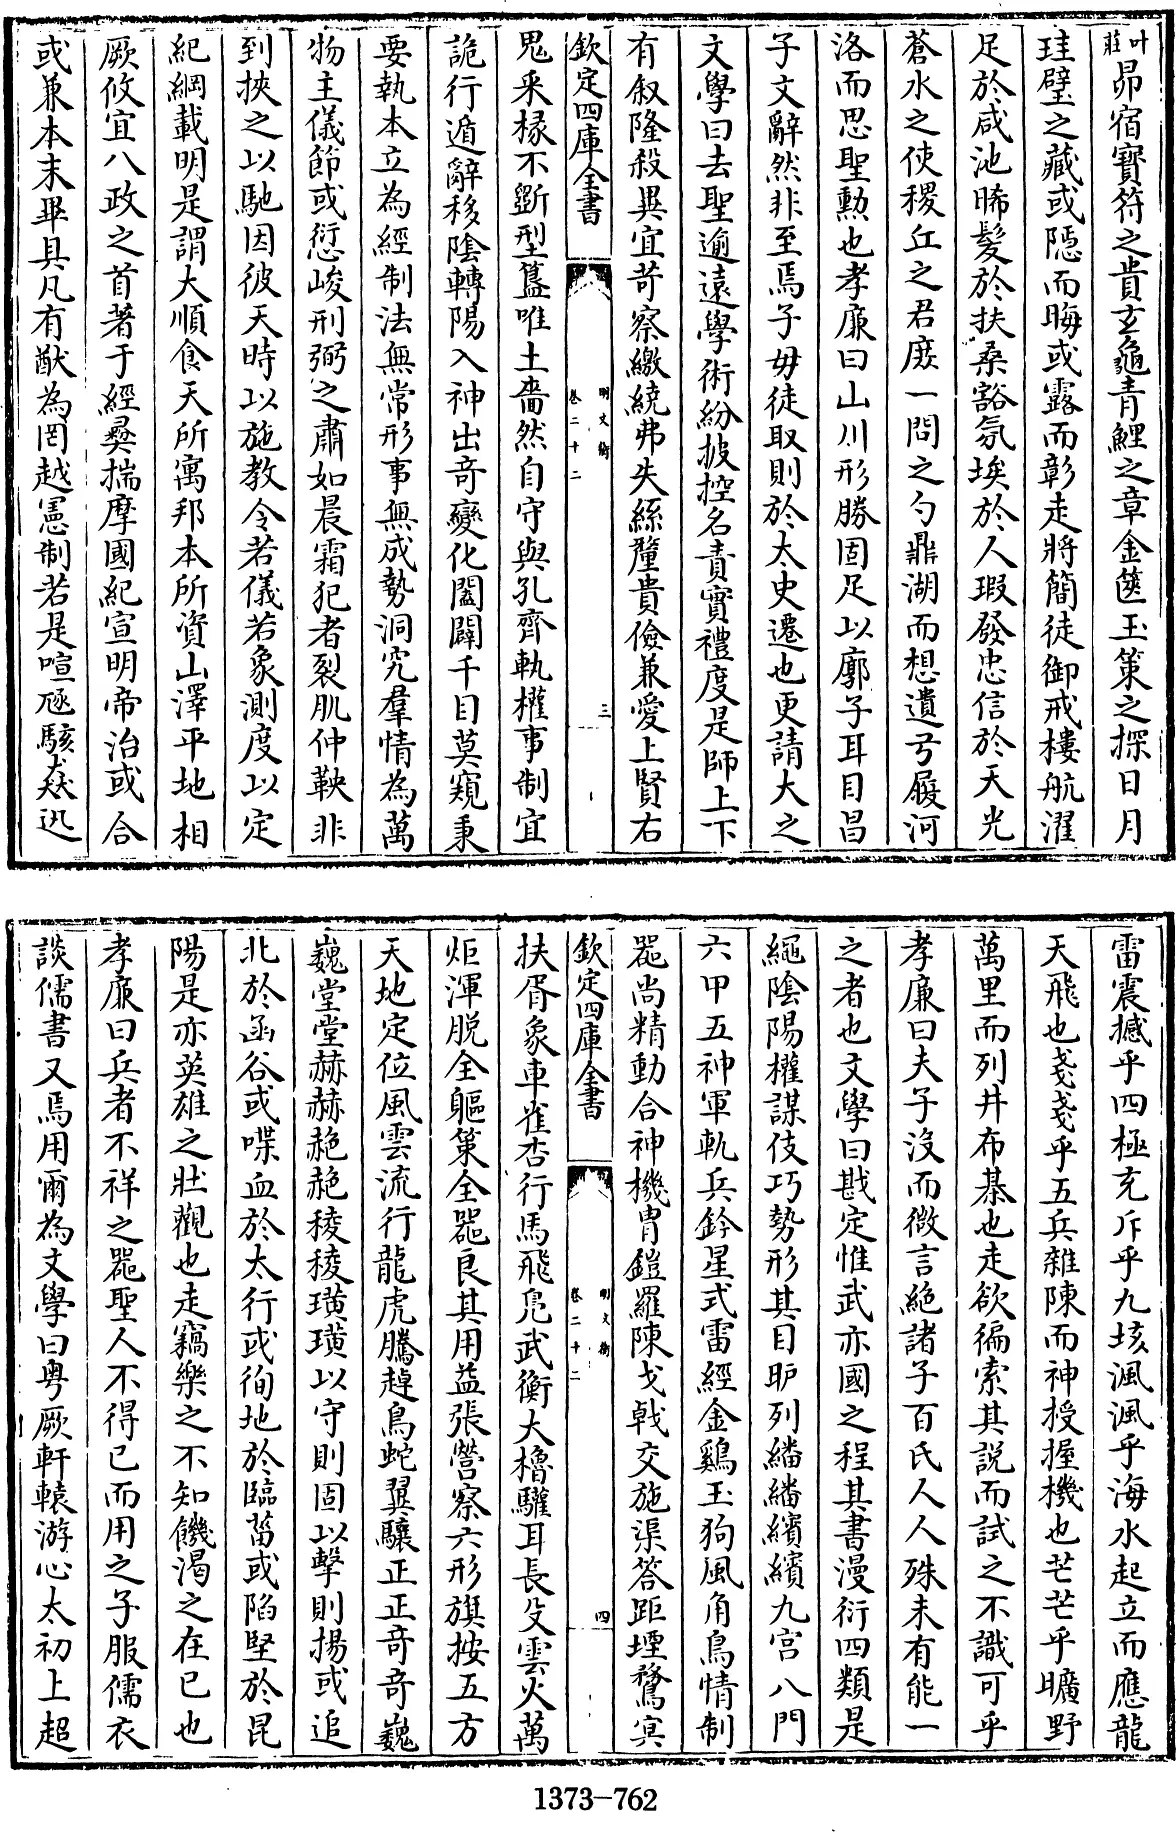 叶莊昴宿寶符之貴玄龜青鯉之章金篋玉策之探日月
珪璧之藏或隱而晦或露而彰走將簡徒御戒樓航濯
足於咸池晞髮於扶桑豁氛埃於人瑕發忠信於天光
蒼水之使稷丘之君庶一問之勺鼎湖而想遺弓履河
洛而思聖勲也孝廉曰山川形勝固足以廓子耳目昌
子文辭然非至焉子毋徒取則於太史遷也更請大之
文學曰去聖逾遠學術紛披控名責實禮度是師上下
有叙隆殺異宜苛察繳繞弗失絲釐貴儉兼愛上賢右
欽定四庫全書
明文衡
卷二十二
三
鬼采椽不斵型簋唯土嗇然自守與孔齊執權事制宜
詭行遁辭移陰轉陽入神出竒變化闔闢千目莫窺秉
要執本立為經制法無常形事無成勢洞究羣情為萬
物主儀節或愆峻刑弼之肅如晨霜犯者裂肌仲鞅非
到挾之以馳因彼天時以施教令若儀若象測度以定
紀綱載明是謂大順食天所寓邦本所資山澤平地相
厥攸宜八政之首著于經彞揣摩國紀宣明帝治或合
或兼本末畢具凡有猷為罔越憲制若是喧豗駭猋迅
雷震撼乎四極充斥乎九垓渢渢乎海水起立而應龍
天飛也戔戔乎五兵雜陳而神授握機也芒芒乎曠野
萬里而列井布棊也走欲徧索其説而試之不識可乎
孝廉曰夫子沒而微言絶諸子百氏人人殊未有能一
之者也文學曰戡定惟武亦國之程其書漫衍四類是
繩陰陽權謀伎巧勢形其目眆列繙繙繽繽九宫八門
六甲五神軍軌兵鈐星式雷經金鷄玉狗風角鳥情制
器尚精動合神機胄鎧羅陳戈戟交施渠答距堙鶩㝠
欽定四庫全書
明文衡
卷二十二
四
扶胥象車雀杏行馬飛鳬武衡大櫓驩耳長殳雲火萬
炬渾脱全軀筞全器良其用益張營察六形旗按五方
天地定位風雲流行龍虎騰趠鳥蛇翼驤正正竒竒巍
巍堂堂赫赫赩赩稜稜璜璜以守則固以擊則揚或追
北於函谷或喋血於太行或徇地於臨菑或陷堅於昆
陽是亦英雄之壯觀也走竊樂之不知饑渴之在已也
孝廉曰兵者不祥之器聖人不得已而用之子服儒衣
談儒書又焉用爾為文學曰粤厥軒轅游心太初上超
1373-762